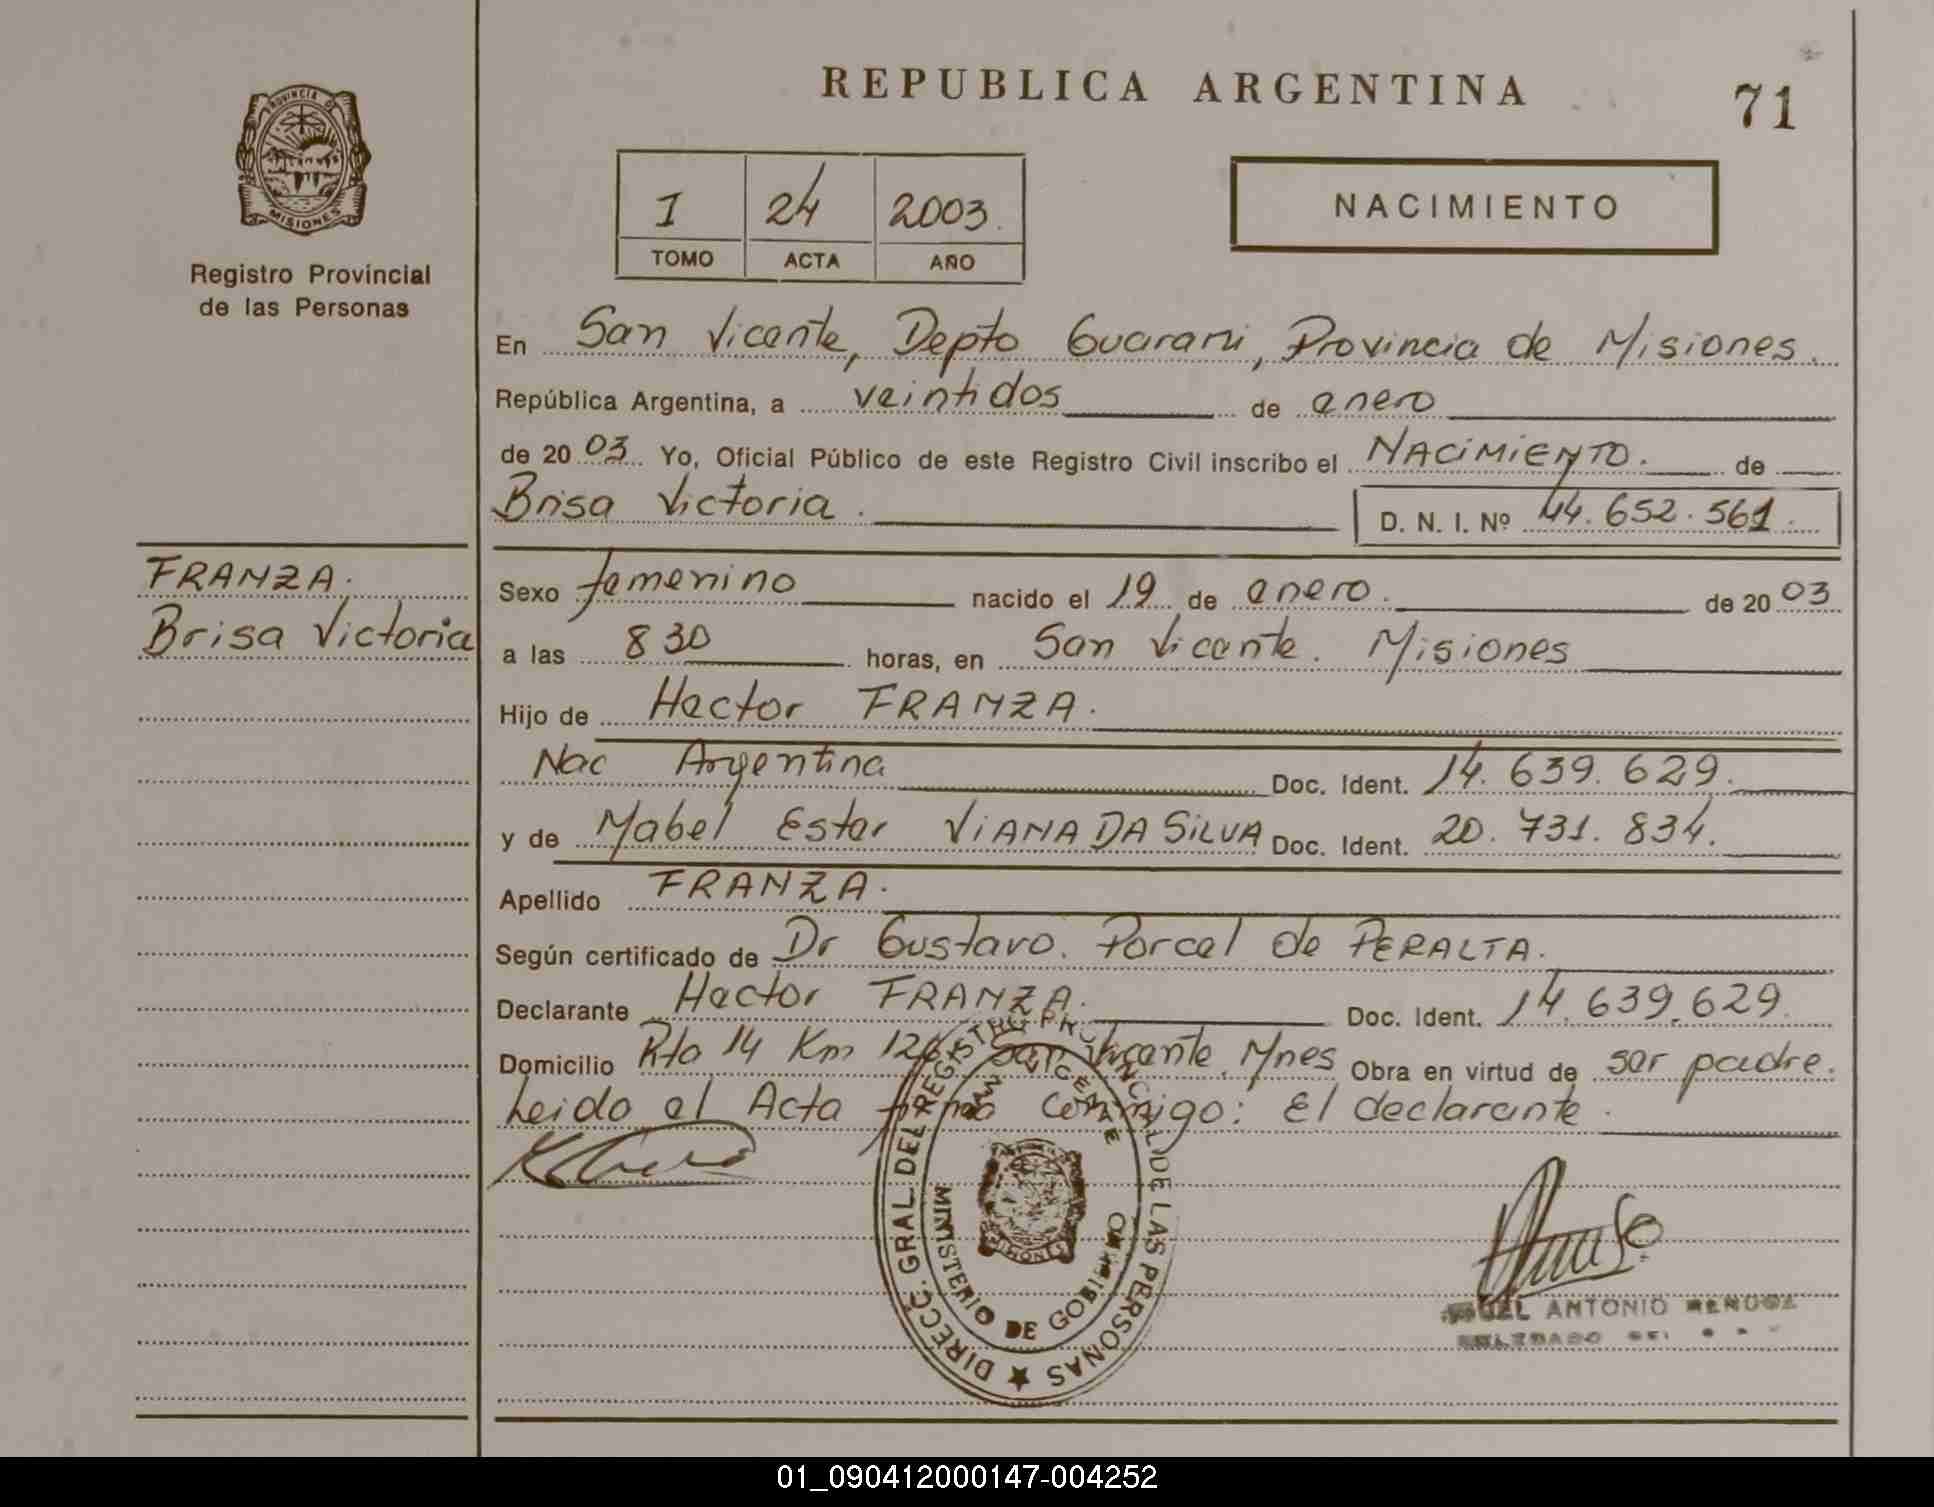 PROVINCIA DE
MISIONES
Registro Provincial
de las Personas
REPUBLICA ARGENTINA
71
1 24 2003.
TOMO ACTA AÑO
NACIMIENTO
En San Vicente, Depto Guarani, Provincia de Misiones.
República Argentina, a veintidos de enero
de 2003 Yo, Oficial Público de este Registro Civil inscribo el NACIMIENTO. de
Brisa Victoria. D. N. I. Nº 44.652.561.
FRANZA.
Brisa Victoria
Sexo femenino nacido el 19 de enero. de 2003
a las 8 30 horas, en San Vicente. Misiones
Hijo de Hector FRANZA.
Nac Argentina Doc. Ident. 14.639.629.
y de Mabel Ester VIANA DA SILVA Doc. Ident. 20.731.834.
Apellido FRANZA.
Según certificado de Dr Gustavo. Porcel de PERALTA.
Declarante Hector FRANZA. Doc. Ident. 14.639.629.
Domicilio Rta 14 Km 126 San Vicente. Mnes Obra en virtud de ser padre.
Leido el Acta firma conmigo: El declarante.
DIRECC. GRAL. DEL REGISTRO PROVINCIAL DE LAS PERSONAS
SAN VICENTE
MISIONES
MINISTERIO DE GOBIERNO
ANTONIO
01_090412000147-004252